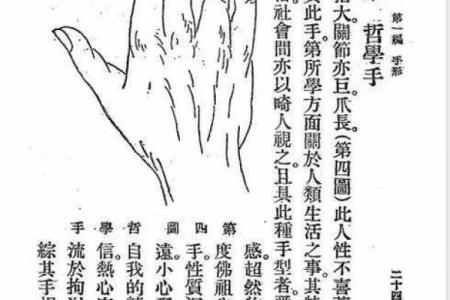 第一編 手形
二十四
哲學手
大關節亦巨。爪長(第四圖)此人性不喜
此手第所學方面關於人類生活之事。其
社會間亦以畸人視之。且具此種手型者。
第四圖 哲學手
感超然
度佛祖
手性質
遠小心
自我的
信熱心
流於拘
綜其手